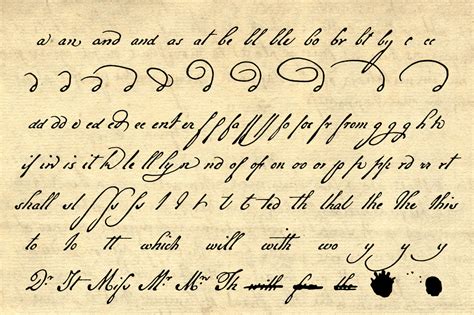 a an and and as at be bl ble bo br bt by c ee
d d d d d d d d d d
dd dd e ed ed ee ent er f ff fa ff fo for fr from g g g h h
if in is it k le ll ly n nd of of on oo or p p pp rd rr rt
shall st ss ss s t t t t t ted th that the The this
to To tt which will with wo y y y
Dr. It Miss Mr. Mrs. Th with for the